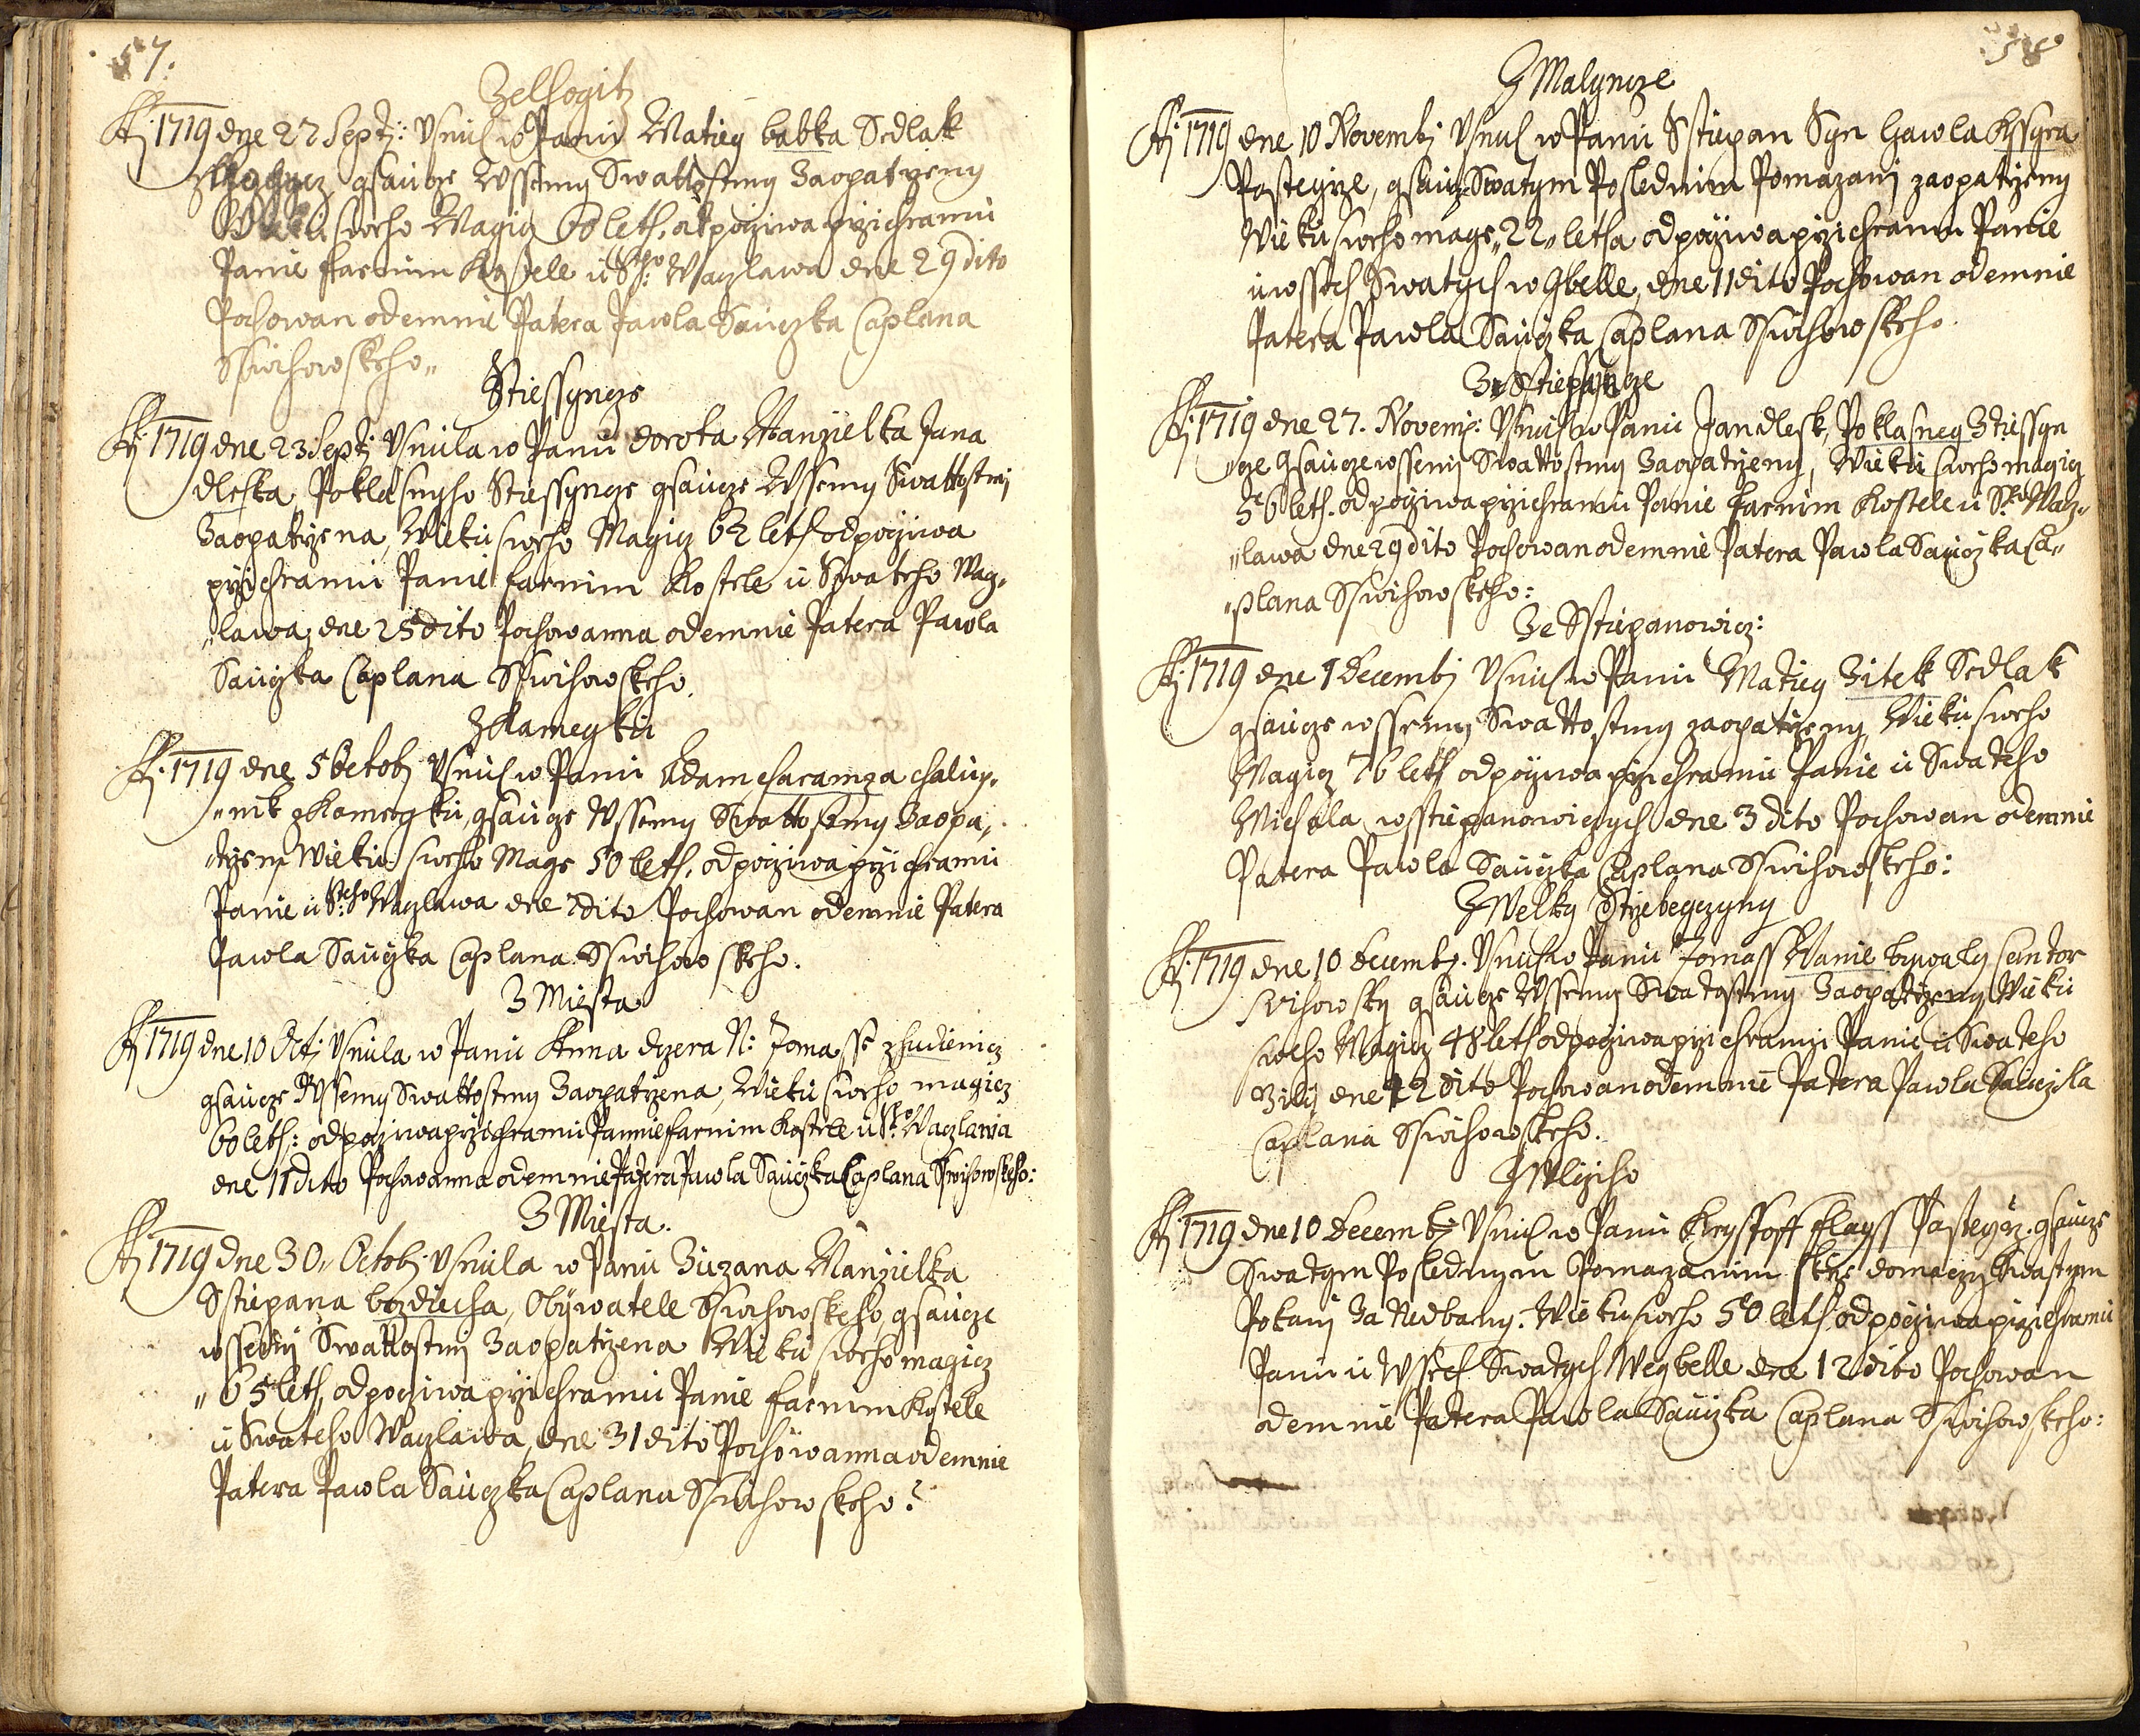 57.
Zelhogitz
Aō 1719 dne 27 Septj: Vsnul w Panu Matieg babka Sedlak
gsaucze Wssemy Swattostmy Zaopatrzeny
Wieku sweho Magicz 60 leth, odpoczywa przi chramu
Panie farnim Kostele u Stho: Waczlawa dne 29 dito
Pochowan odemnie Patera Pawla Sauczka Caplana
Sswihowskeho„
Stiessyncze
Aō 1719 dne 23 Septj Vsnula w Panu dorota Manzielka Jana
dleska, Poklasnyho Stiessyncze gsaucze Wssemy Swattostmi
Zaopatrzena, Wieku sweho Magicz 62 leth odpoczywa
przi chramu Panie farnim Kostele u Swateho Wacz„
„lawa, dne 25 dito Pochowanna odemnie Patera Pawla
Sauczka Caplana Sswihowskeho.
Z Kamegku
Aō 1719 dne 5 Octobj Vsnul w Panu Adam charamza chalup„
„nik z Kamegku, gsaucze Wssemy Swattostmy Zaopa„
„trzeny Wieku sweho Mage 50 leth, odpoczywa przi chramu
Panie u Stho Waczlawa dne 7 dito Pochowan odemnie Patera
Pawla Sauczka Caplana Sswihowskeho.
Z Miesta
Aō 1719 dne 10 Octj Vsnula w Panu Anna dczera N: Tomasse z hudienicz
gsaucze Wssemy Swattostmy Zaopatrzena, Wieku sweho magicz
60 leth: odpoczywa przi chramu Pannie farnim Kostele u Stho Waczlawa
dne 11 dito Pochowanna odemnie Patera Pawla Sauczka Caplana Sswihowskeho:
Z Miesta.
Aō 1719 dne 30„ Octobj Vsnula w Panu Zuzana Manzielka
Sstiepana bezdiecha, Obywatele Sswihowskeho, gsaucze
wssemy Swattostmi Zaopatrzena Wieku sweho magicz
„65 leth, odpoczywa przi chramu Panie farnim Kostele
u Swateho Waczlawa, dne 31 dito Pochowanna odemnie
Patera Pawla Sauczka Caplana Sswihowskeho:
58
Z Malyncze
Aō 1719 dne 10 Novembj Vsnul w Panu Sstiepan Syn hawla Kysyra
Pasteyrze, gsaucz Swatym Poslednim Pomazanj zaopatrzeny
Wieku sweho mage„ 22„ letha odpoczywa przi chramu Panie
u wssech Swatych w Gbelle, dne 11 dito Pochowan odemnie
Patera Pawla Sauczka Caplana Sswihowskeho.
Ze Stiepyncze
Aō 1719 dne 27. Novemb: Vsnul w Panu Jan dlesk, Poklasneg Z tiessyn
„cze Gsaucze wssemy Swattostmy Zaopatrzeny, Wieku sweho magicz
56 leth. odpoczywa przi chramu Panie farnim Kostele u Stho Wacz„
„lawa dne 29 dito Pochowan odemnie Patera Pawla Sauczka Ca„
„plana Sswihowskeho:
Ze Sstiepanowicz:
Aō 1719 dne 1 Decembj Vsnul w Panu Matieg Zitek Sedlak
gsaucze wssemy Swattostmy zaopatrzeny, Wieku sweho
Magicz 76 leth odpoczywa przi chramu Panie u Swateho
Michala w sstiepanowiczych dne 3 dito Pochowan odemnie
Patera Pawla Sauczka Caplana Sswihowskeho:
Z Welky Strzebeyczyny
Aō 1719 dne 10 decembj. Vsnul w Panu Tomass Wanie bywaly Cantor
swihowsky gsaucze Wssemy Swatostmy Zaopatrzeny Wieku
sweho Magicz 48 leth odpoczywa przi chramu Panie u Swateho
Zilij dne 12 dito Pochowan odemnie Patera Pawla Sauczka
Caplana Sswihowskeho.
Z Wlczyho
Aō 1719 dne 10 Decembj Vsnul w Panu Krystoff Flayss Pasteyrz. gsaucze
Swatym Poslednym Pomazanim skrze domaczy
Pokanj Zanedbany. Wieku sweho 50 leth odpoczywa przi chramu
Panu u Wssech Swatych We gbelle dne 12 dito Pochowan
odemnie Patera Pawla Sauczka Caplana Sswihowskeho: